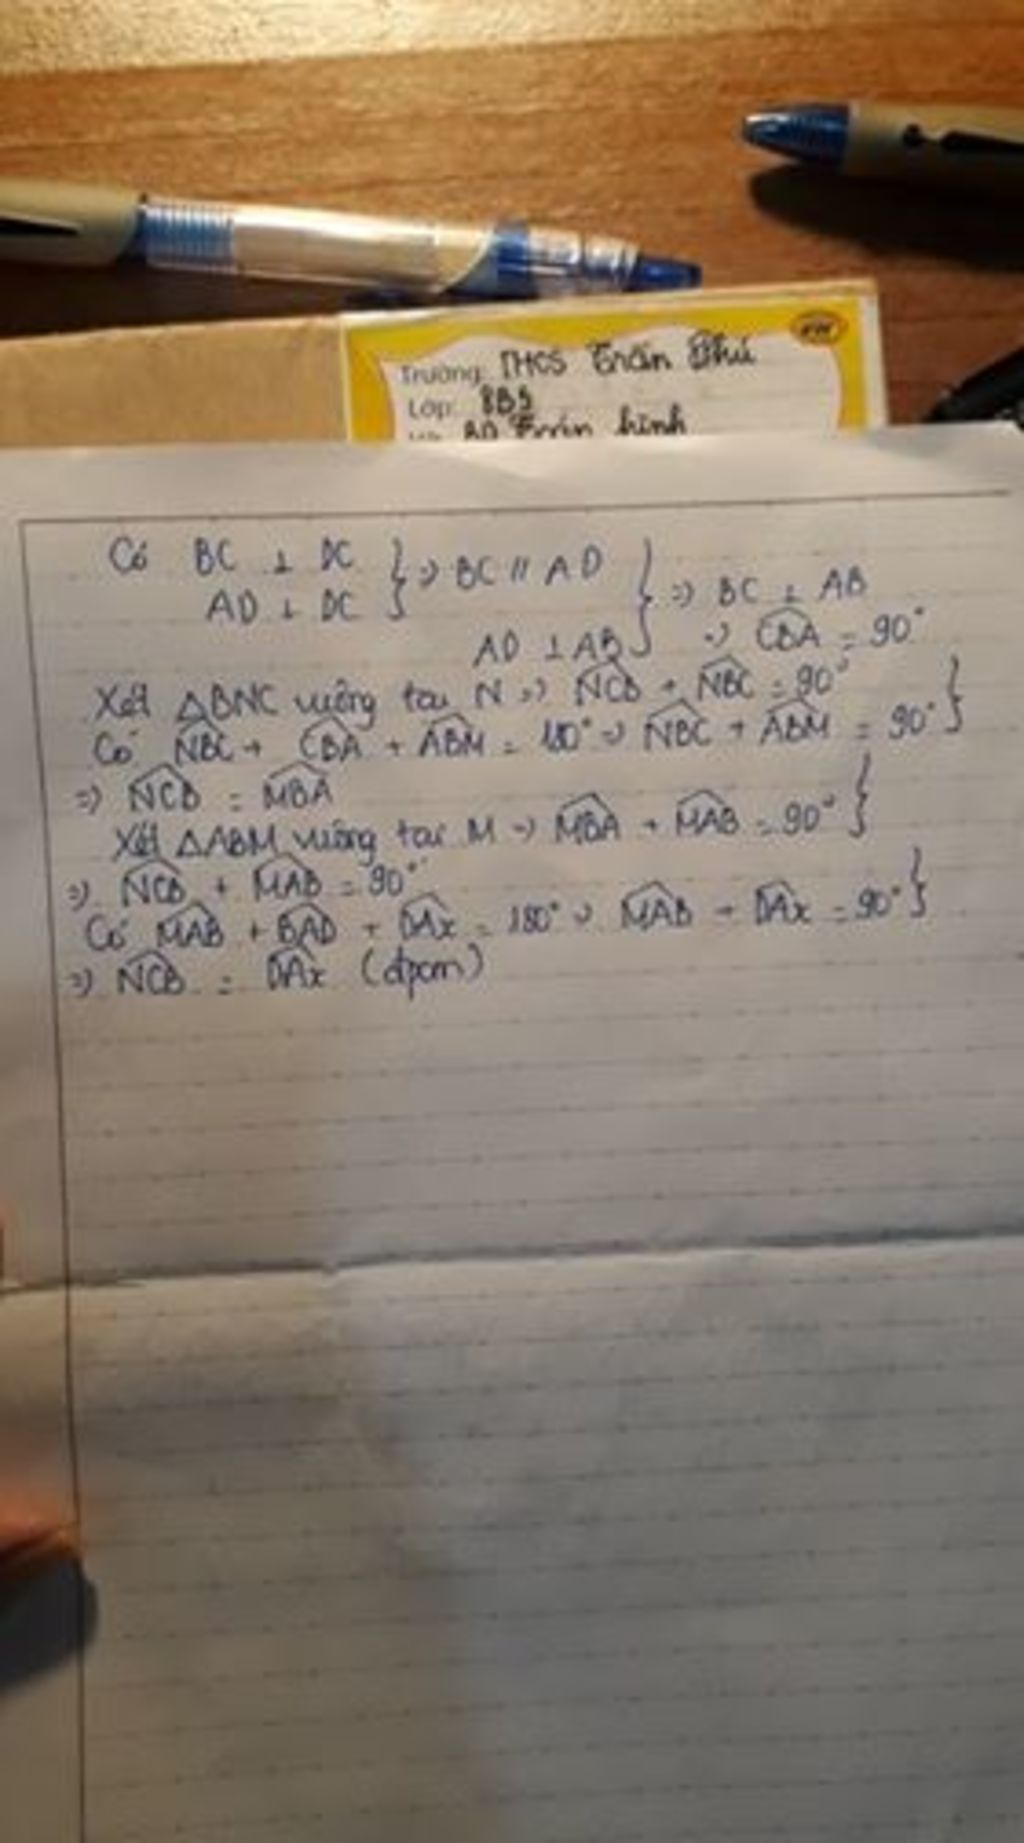 Trường: THCS Trần Phú
Lớp: 8B5
BD Toán hình
Có BC ⊥ DC } => BC // AD } => BC ⊥ AB
AD ⊥ DC
AD ⊥ AB => CBA = 90°
Xét △BNC vuông tại N => NCB + NBC = 90° }
Có NBC + CBA + ABM = 180° => NBC + ABM = 90°
=> NCB = MBA }
Xét △ABM vuông tại M => MBA + MAB = 90°
=> NCB + MAB = 90° }
Có MAB + BAD + DAx = 180° => MAB + DAx = 90°
=> NCB = DAx (đpcm)